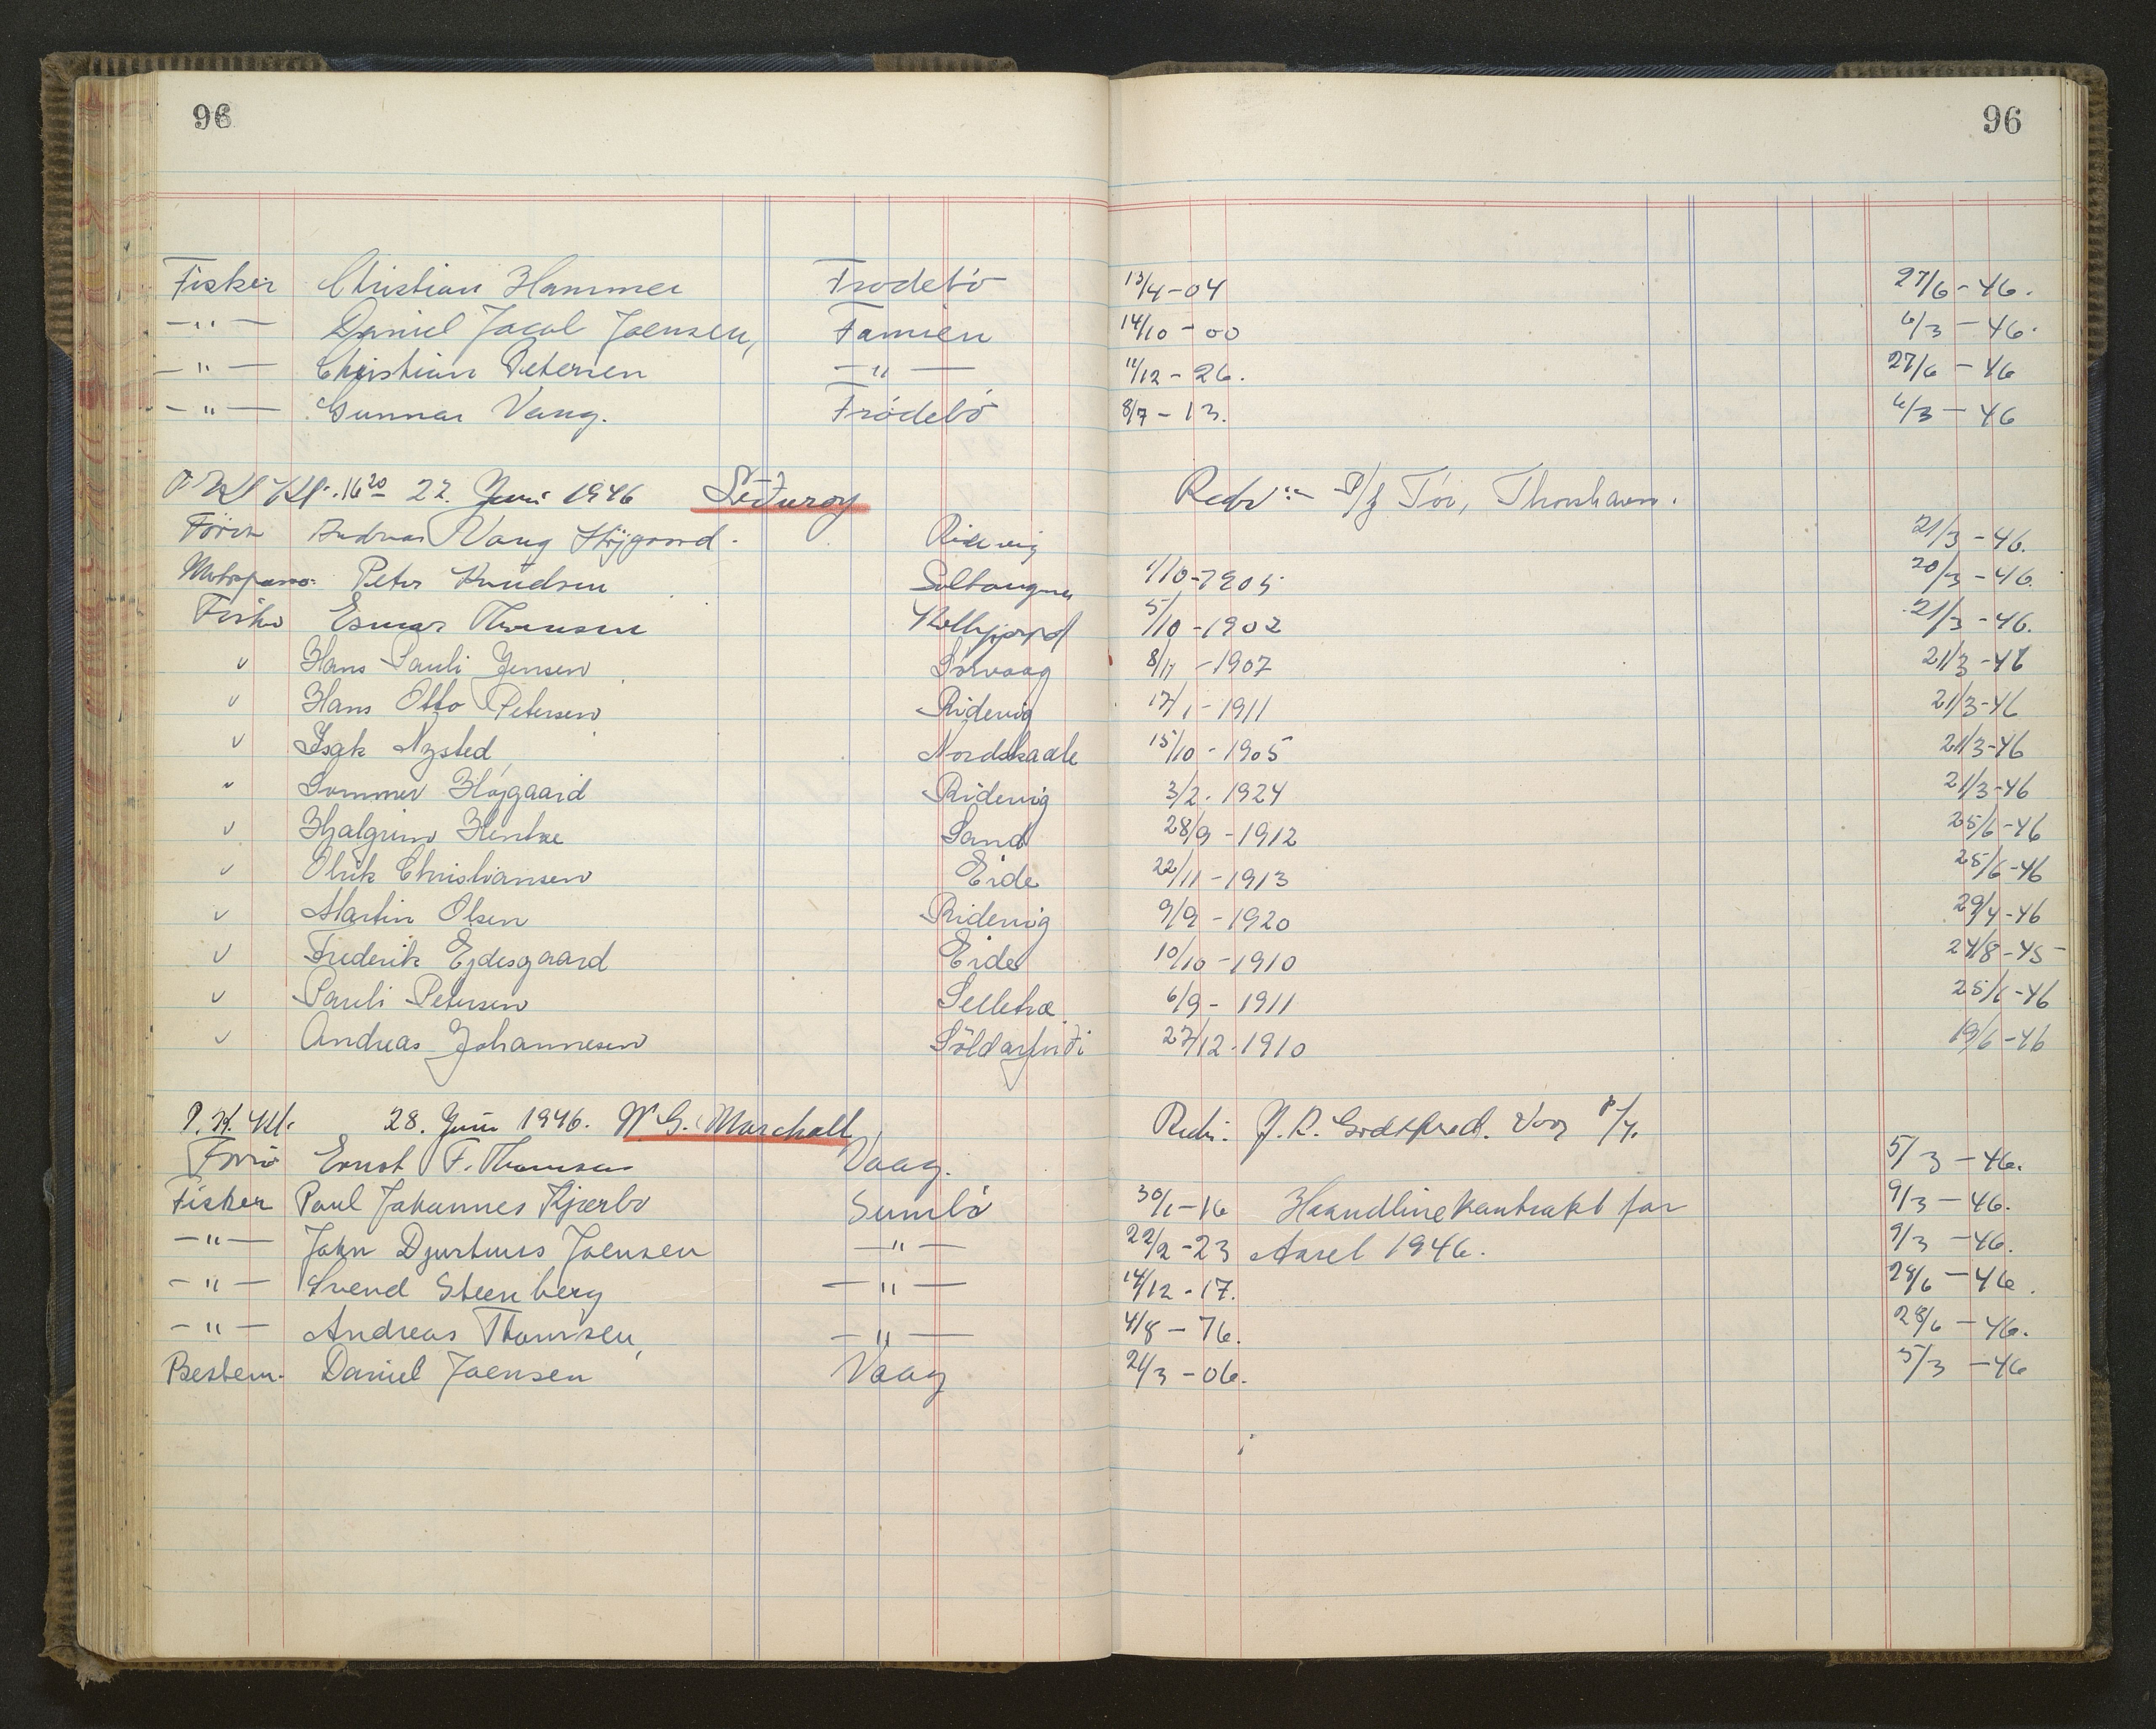 96 96
Fisker Christian Hammer Frodebö 13/4-04 27/6-46.
-"- Daniel Jacob Joensen, Famien 14/10-00 6/3-46.
-"- Christian Petersen -"- 11/12-26. 27/6-46
-"- Gunnar Vang. Fródebö 8/7-13. 6/3-46
Kl. 16 20 27. Juni 1946 Suðuroy Redr P/f Tór, Thorshavn.
Förer Andreas Vang Höjgaard. Ridevig 21/3-46.
Motorpass. Peter Knudsen Saltangna 1/10-1905 20/3-46.
Fisker Esmar Thomsen Kollefjord 5/10-1902 21/3-46.
v Hans Pauli Jensen Sørvaag 8/11-1907 21/3-46
v Hans Otto Petersen Ridevig 17/1-1911 21/3-46
v Isak Nysted, Nordskaale 15/10-1905 21/3-46
" Sommer Højgaard Ridevig 3/2-1924 21/3-46
v Hjalgrim Hentze Sand 28/9-1912 25/6-46
v Olrik Christiansen Eide 22/11-1913 25/6-46
v Martin Olsen Ridevig 9/9-1920 29/4-46
v Frederik Ejdesgaard Eide 10/10-1910 24/8-45
v Pauli Petersen Selletræ 6/9-1911 25/6-46
v Andreas Johannesen Söldarfirði 27/12-1910 19/6-46
P.K. Kl. 28. Juni 1946. W.G. Marchall Redr. J.R. Godtfred. Vaag P/f.
Förer Ernst F. Thomsen Vaag. 5/3-46.
Fisker Poul Johannes Kjærbo Sumbö 30/1-16 Haandlinekontrakt for 9/3-46.
-"- John Djurhuus Joensen -"- 22/2-23 Aaret 1946. 9/3-46.
-"- Svend Steenberg -"- 14/12-17. 28/6-46.
-"- Andreas Thomsen, -"- 4/8-76. 28/6-46.
Bestem. Daniel Joensen Vaag 21/3-06. 5/3-46